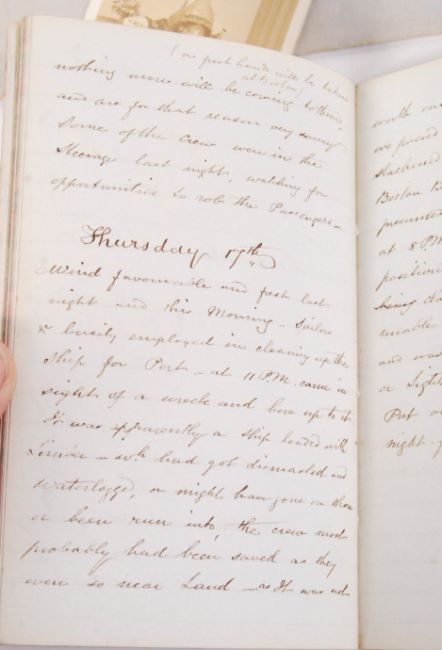 (as fresh hands will be taken
at Boston)
nothing more will be coming to them -
and are for that reason very
Some of the crew were in the
Steerage last night, watching for
opportunities to rob the Passengers -
Thursday 17th
Wind favourable and fresh last
night and this Morning - Sailors
& busily employed in cleaning up the
Ship for Port - at 11 P.M. came in
sight of a wreck and bore up to it
It was apparently a Ship loaded with
- wh had got dismasted and
Waterlogged, or might have gone on
or been run into, the crew most
probably had been saved as they
were so near Land - as It was not
worth
we passed
Boston
at 8 P.M
position
being
unable
and was
or light
Put
night -